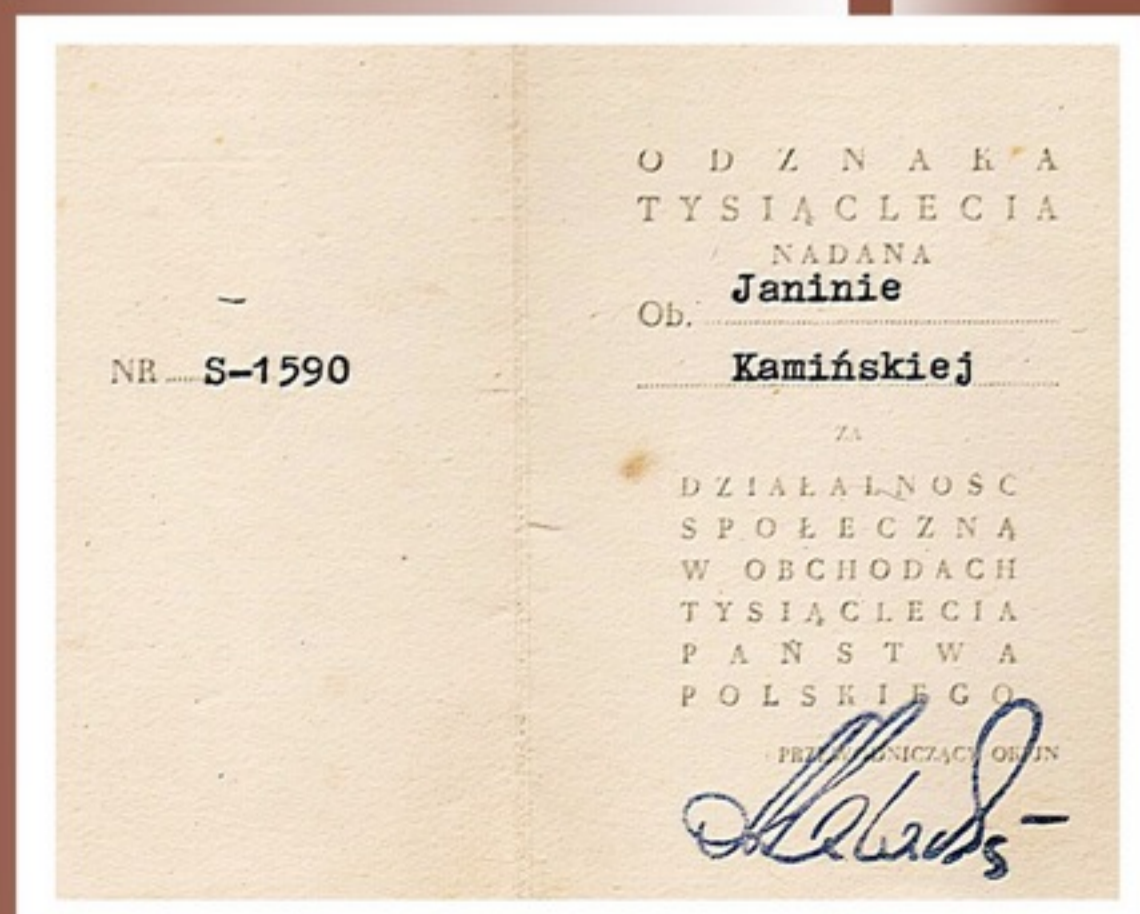 NR S-1590
ODZNAKA
TYSIĄCLECIA
NADANA
Ob. Janinie
Kamińskiej
ZA
DZIAŁALNOŚĆ
SPOŁECZNĄ
W OBCHODACH
TYSIĄCLECIA
PAŃSTWA
POLSKIEGO
PRZEWODNICZĄCY OKFJN